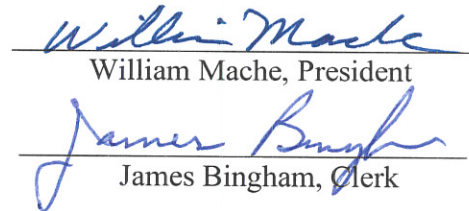 William Mache
William Mache, President
James Bingham
James Bingham, Clerk